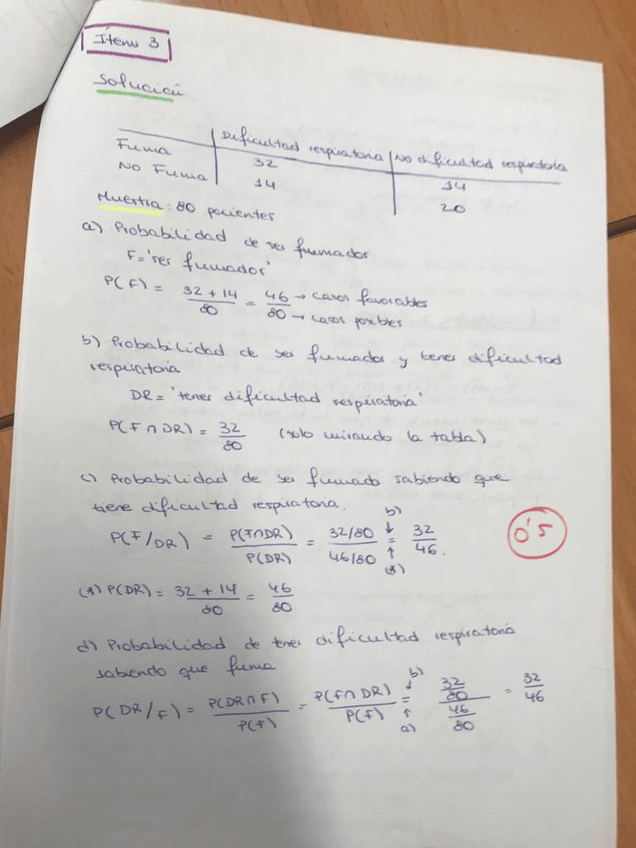 Ítem 3
Solución
Dificultad respiratoria | No dificultad respiratoria
Fuma 32 14
No Fuma 14 20
Muestra: 80 pacientes
a) Probabilidad de ser fumador
F = 'ser fumador'
P(F) = 32 + 14 / 80 = 46 / 80 → casos favorables → casos posibles
b) Probabilidad de ser fumador y tener dificultad
respiratoria
DR = 'tener dificultad respiratoria'
P(F ∩ DR) = 32 / 80 (solo mirando la tabla)
c) Probabilidad de ser fumado sabiendo que
tiene dificultad respiratoria.
P(F/DR) = P(F∩DR) / P(DR) = 32/80 / 46/80 b) ↓ = ↑ (*) 32 / 46.
0'5
(*) P(DR) = 32 + 14 / 80 = 46 / 80
d) Probabilidad de tener dificultad respiratoria
sabiendo que fuma
P(DR/F) = P(DR∩F) / P(F) = P(F∩DR) / P(F) b) ↓ = ↑ a) 32/80 / 46/80 = 32 / 46